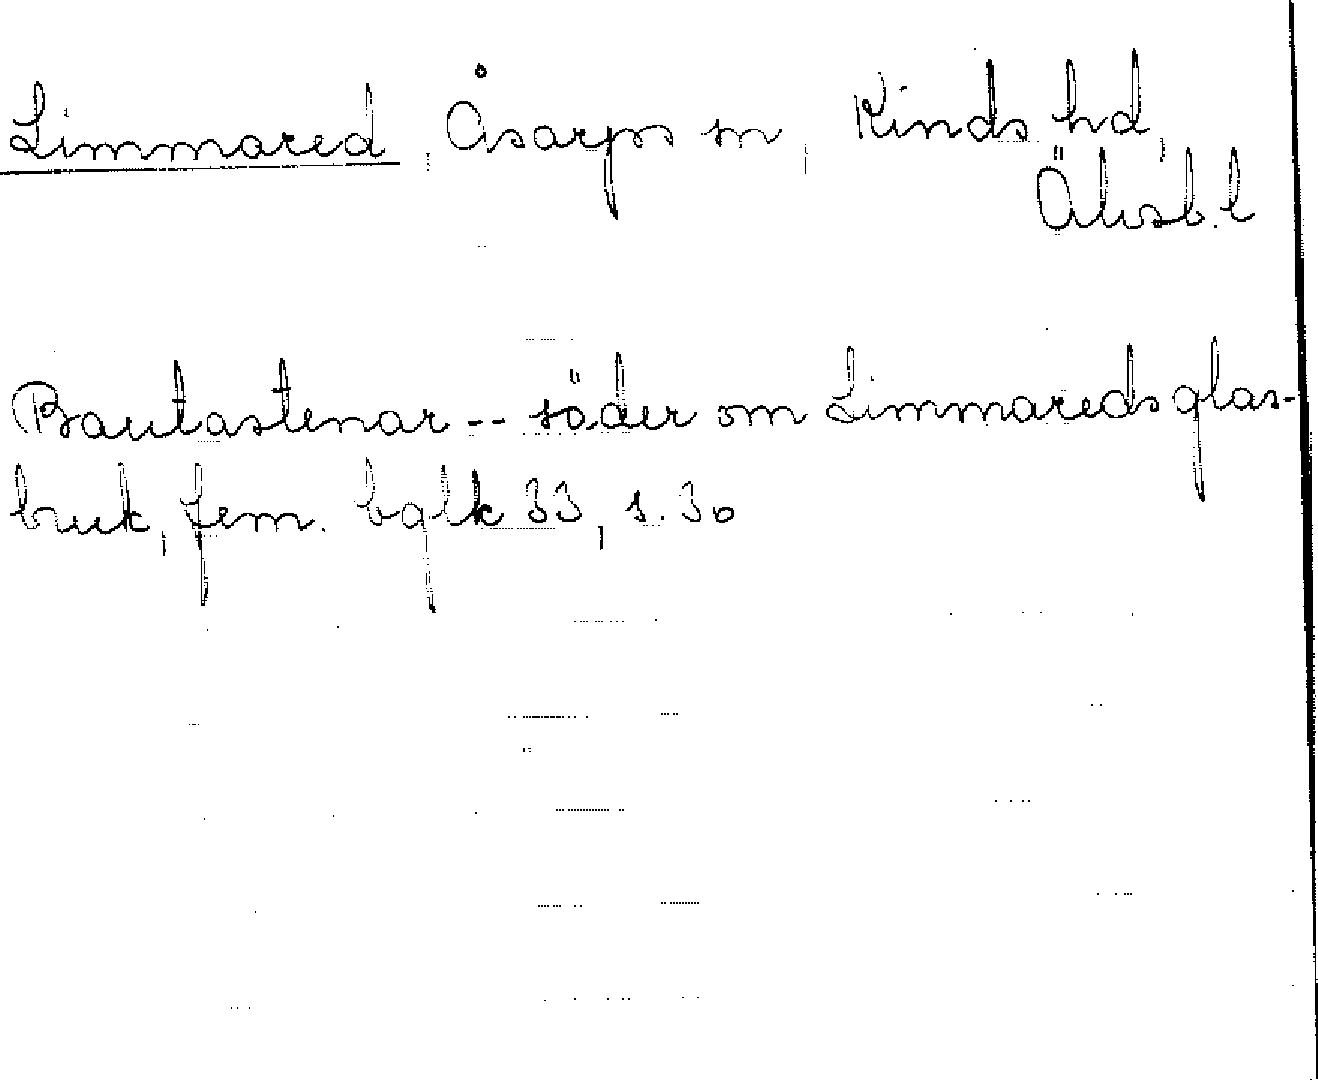 Limmared, Åsarps sn, Kinds hd,
Älvsb. l
Bautastenar -- söder om Limmareds glas-
bruk, fem. bglk 33, s. 30